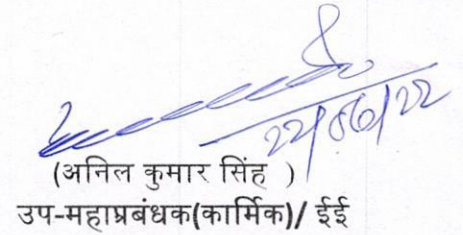 22/06/22
(अनिल कुमार सिंह )
उप-महाप्रबंधक(कार्मिक)/ ईई